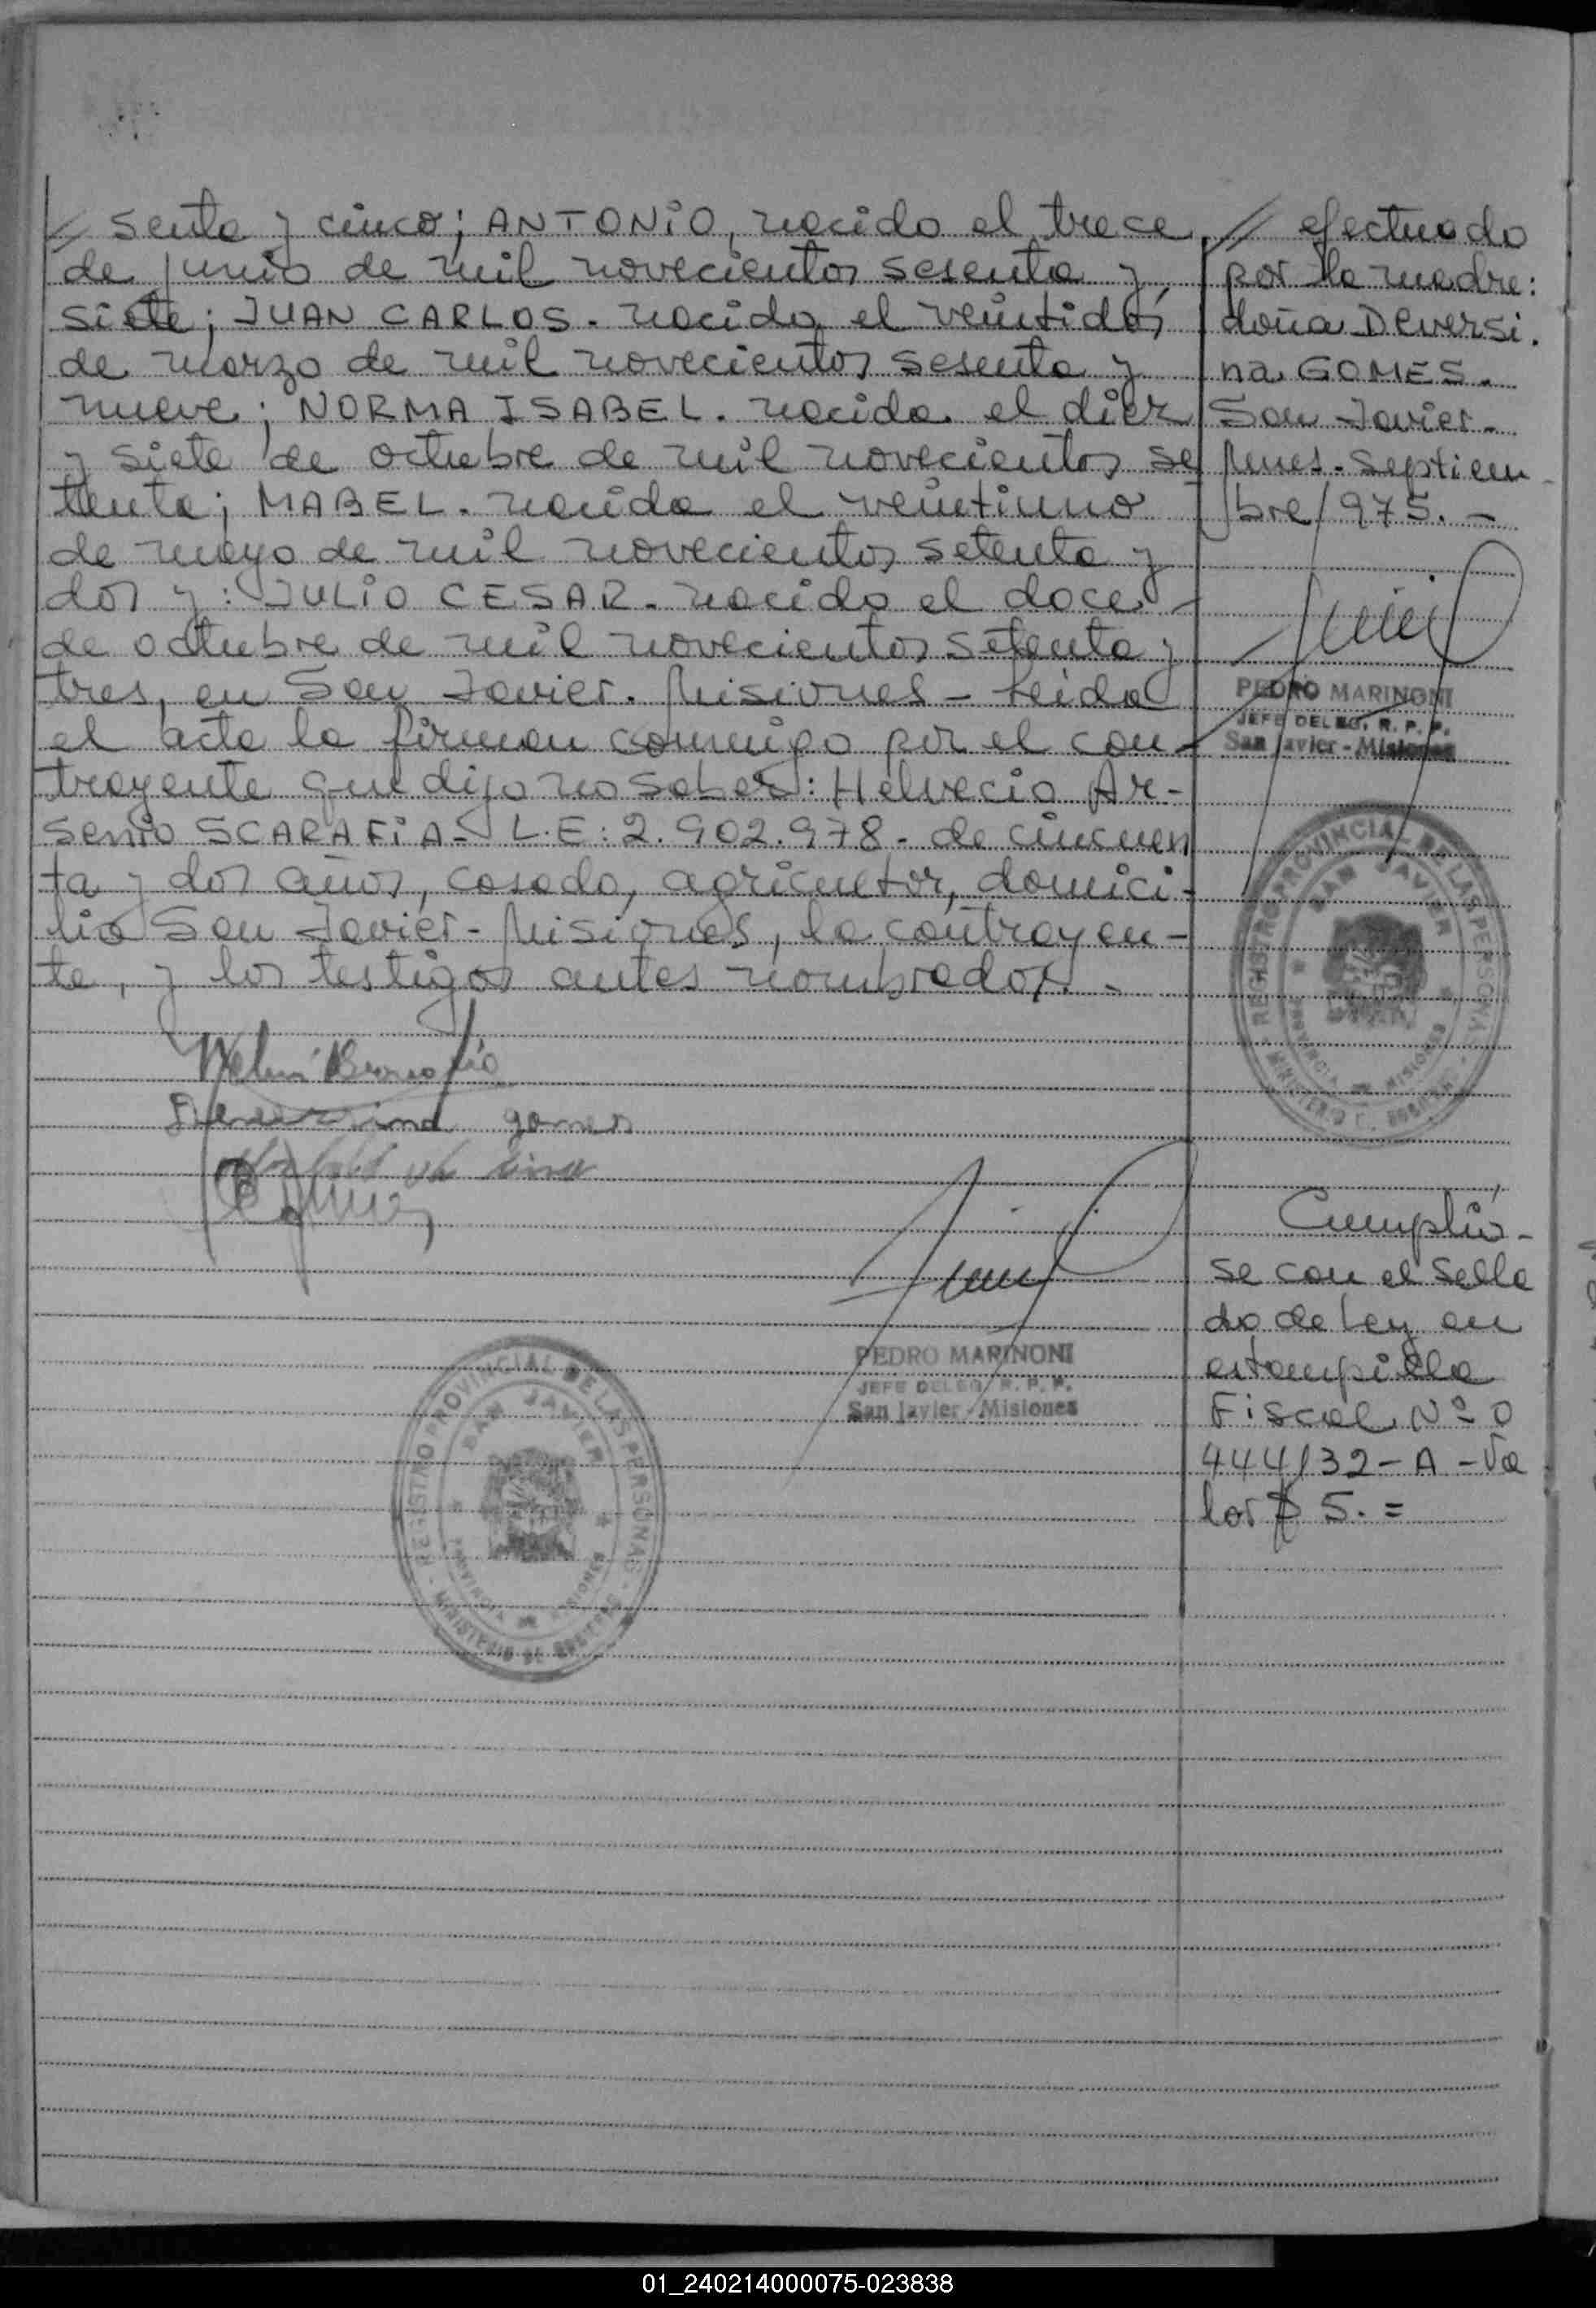 // senta y cinco; ANTONIO, nacido el trece
de junio de mil novecientos sesenta y
siete; JUAN CARLOS. nacido el veintidós
de marzo de mil novecientos sesenta y
nueve; NORMA ISABEL. nacida el diez
y siete de octubre de mil novecientos se
tenta; MABEL. nacida el veintiuno
de mayo de mil novecientos setenta y
dos y: JULIO CESAR. nacido el doce
de octubre de mil novecientos setenta y
tres, en San Javier. Misiones - Leida
el acta la firman conmigo por el con-
trayente que dijo no saber: Helvecio Ar-
senio SCARAFIA - L.E: 2.902.978 - de cincuen
ta y dos años, casado, agricultor, domici-
lio San Javier - Misiones, la contrayen-
te, y los testigos antes nombrados. -
gomes
PEDRO MARINONI
JEFE DELEG. R. P. P.
San Javier - Misiones
REGISTRO PROVINCIAL DE LAS PERSONAS
SAN JAVIER
PROVINCIA DE MISIONES
MINISTERIO DE GOBIERNO
// efectuado
por la madre:
doña Deversi.
na GOMES.
San Javier -
Mnes. Septiem
bre/975. -
PEDRO MARINONI
JEFE DELEG. R. P. P.
San Javier - Misiones
REGISTRO PROVINCIAL DE LAS PERSONAS
SAN JAVIER
PROVINCIA DE MISIONES
Cumplió-
se con el sella
do de Ley en
estampilla
Fiscal Nº 0
444132 - A - Va
lor $ 5. =
01_240214000075-023838